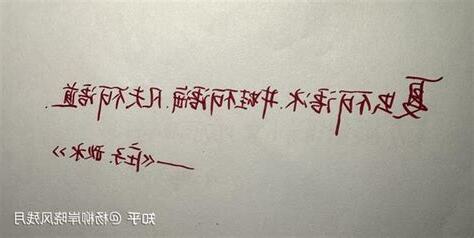 夏虫不可语冰.井蛙不可语海.凡夫不可语道.
——《庄子·秋水》
知乎 @杨柳岸晓风残月